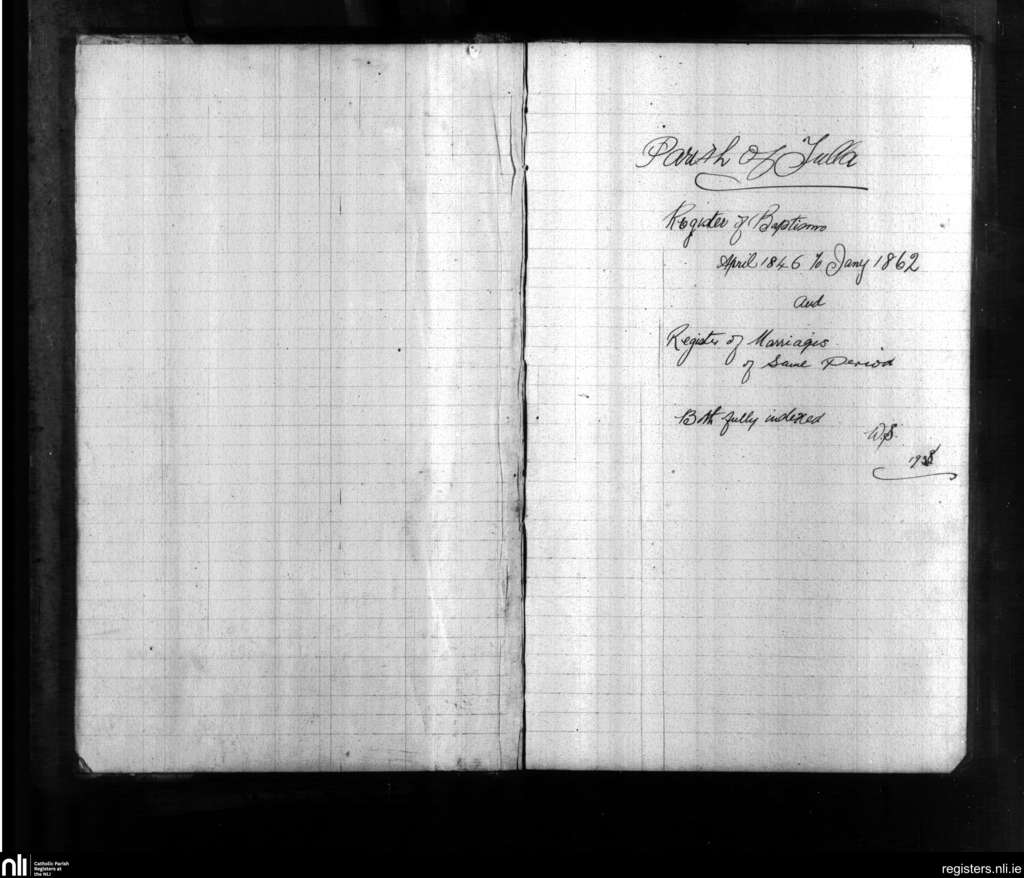 Parish of Tulla
Register of Baptisms
April 1846 to Jany 1862
and
Register of Marriages
of Same Period
Both fully indexed
W.S.
nli
Catholic Parish
Registers at
the NLI
registers.nli.ie